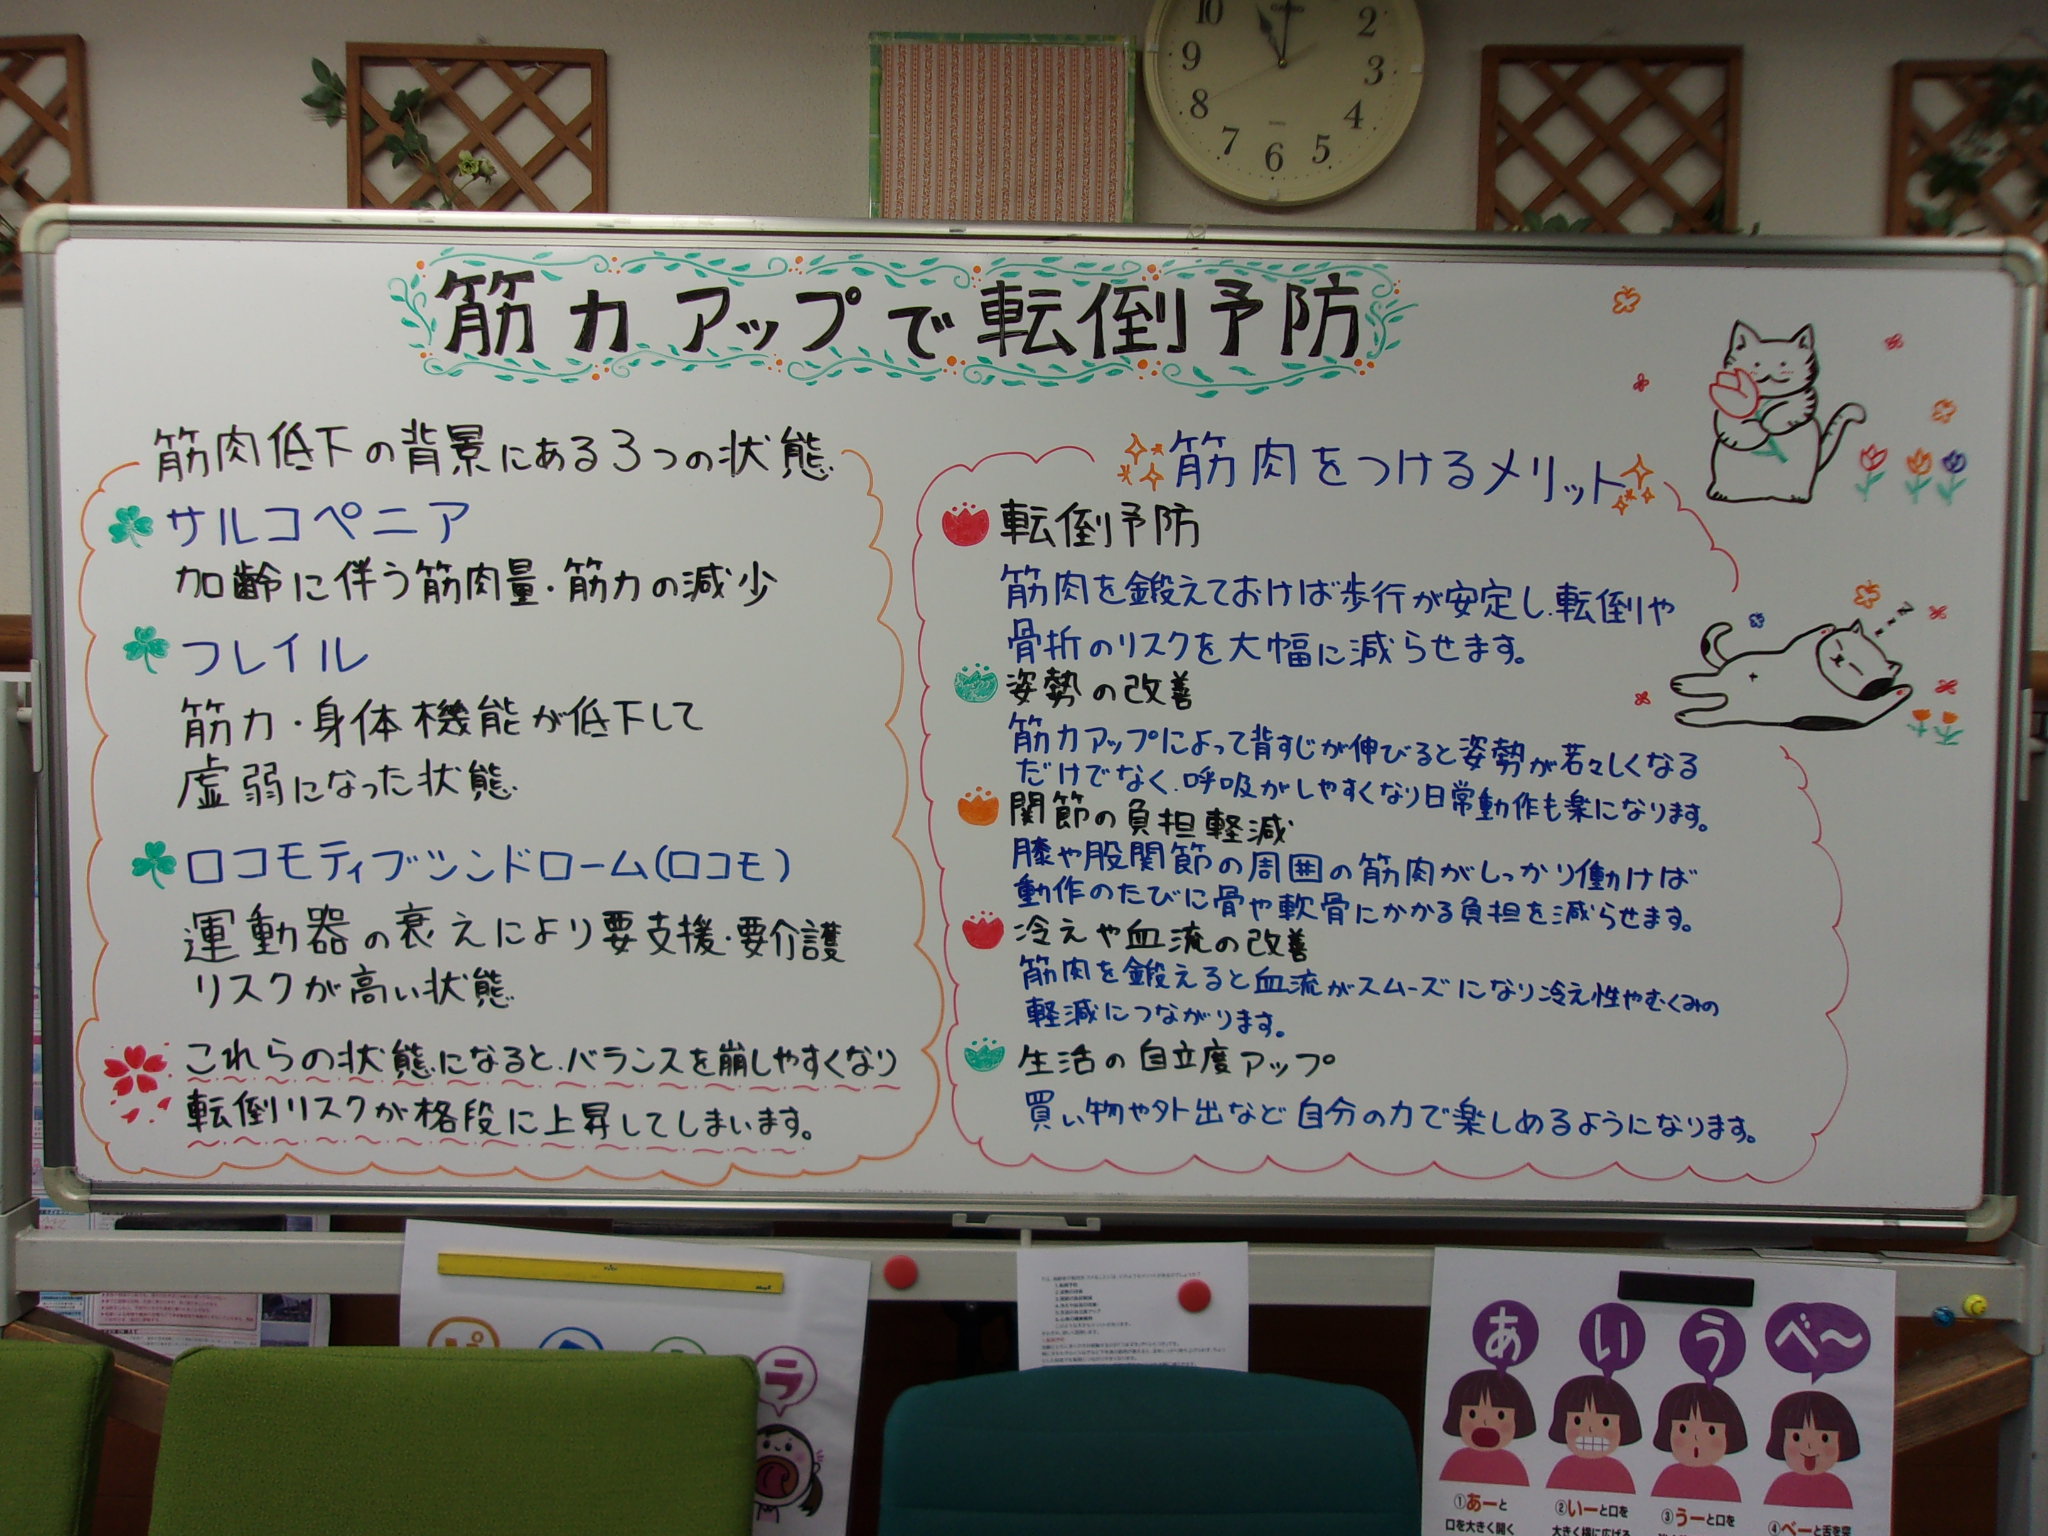 10
2
9
3
8
4
7
5
6
筋力アップで転倒予防
筋肉低下の背景にある3つの状態
サルコペニア
加齢に伴う筋肉量・筋力の減少
フレイル
筋力・身体機能が低下して
虚弱になった状態
ロコモティブシンドローム(ロコモ)
運動器の衰えにより要支援・要介護
リスクが高い状態
これらの状態になると、バランスを崩しやすくなり
転倒リスクが格段に上昇してしまいます。
筋肉をつけるメリット
転倒予防
筋肉を鍛えておけば歩行が安定し、転倒や
骨折のリスクを大幅に減らせます。
姿勢の改善
筋力アップによって背すじが伸びると姿勢が若々しくなる
だけでなく、呼吸がしやすくなり日常動作も楽になります。
関節の負担軽減
膝や股関節の周囲の筋肉がしっかり働けば
動作のたびに骨や軟骨にかかる負担を減らせます。
冷えや血流の改善
筋肉を鍛えると血流がスムーズになり冷え性やむくみの
軽減につながります。
生活の自立度アップ
買い物や外出など自分の力で楽しめるようになります。
z
ラ
あ
い
う
べ〜
①あーと
口を大きく開く
②いーと口を
大きく横に広げる
③うーと口を
④べーと舌を突